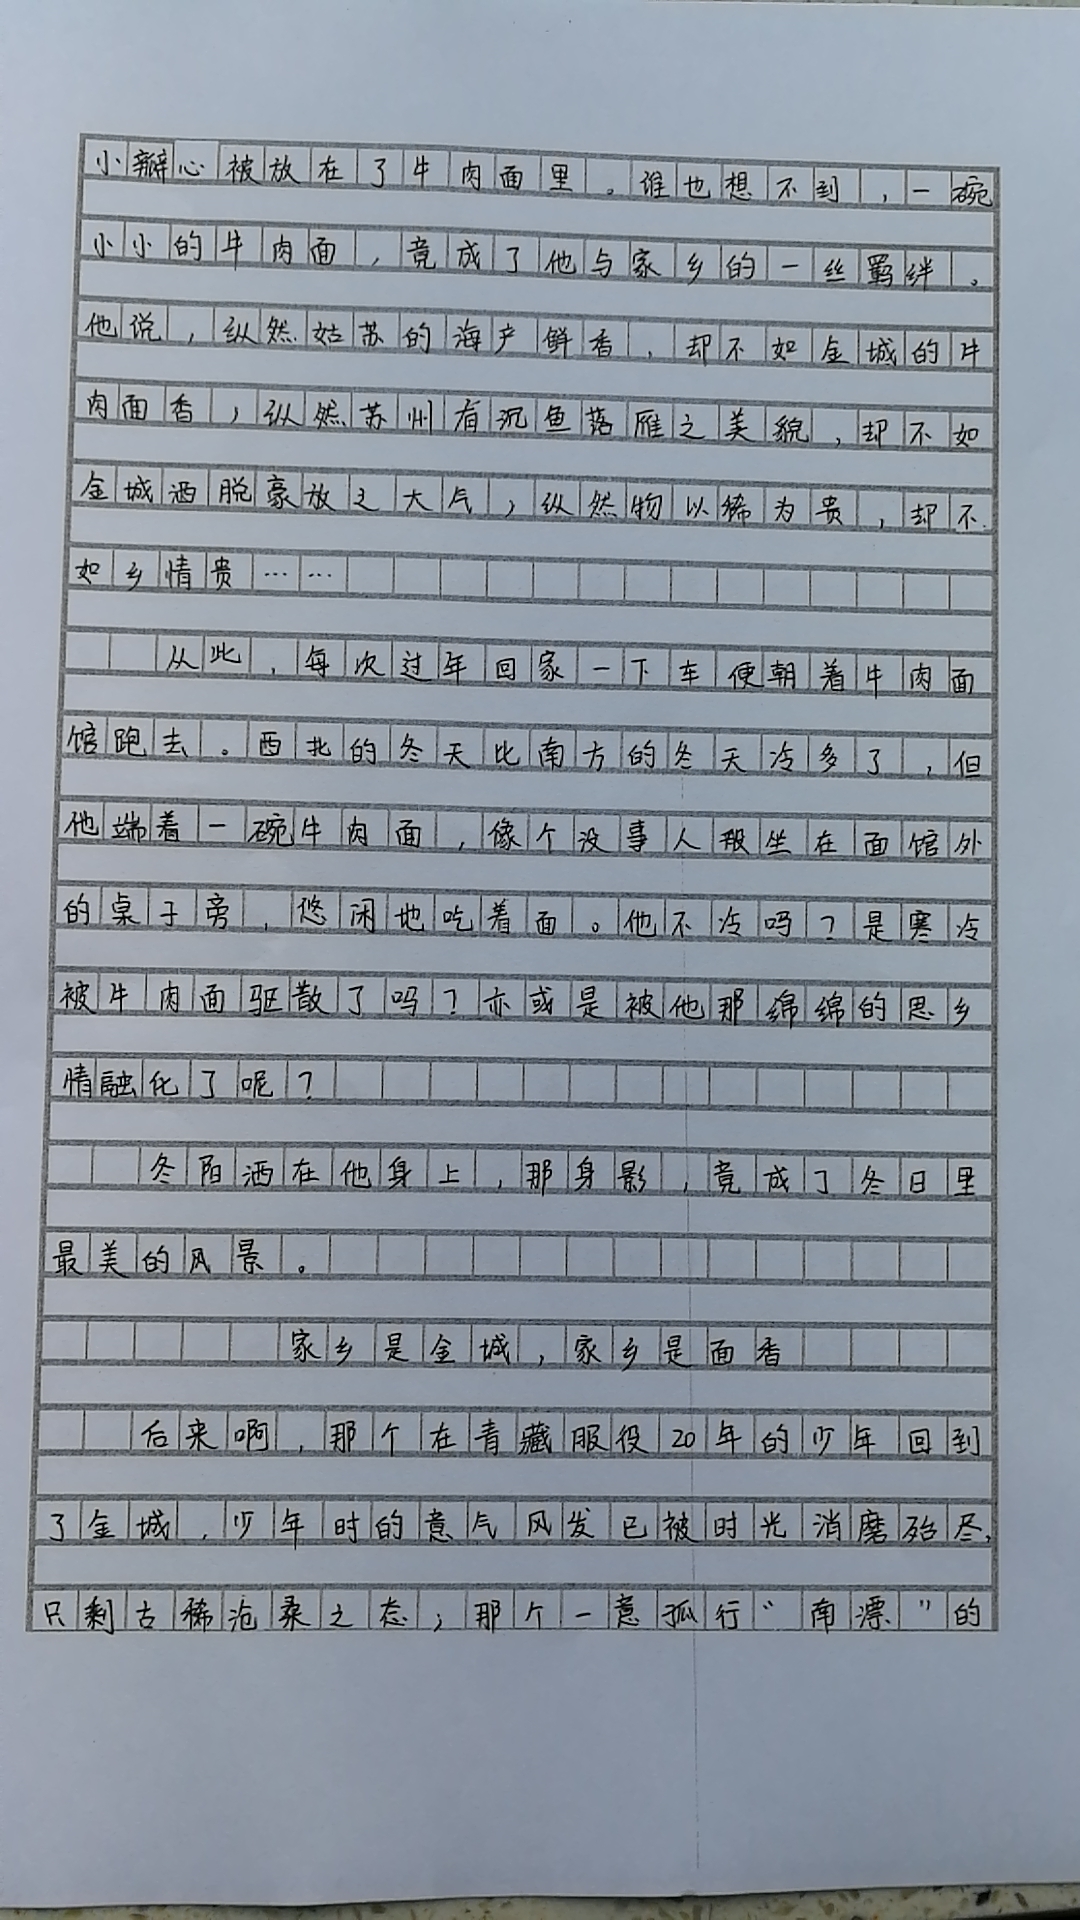 小瓣心被放在了牛肉面里。谁也想不到,一碗
小小的牛肉面,竟成了他与家乡的一丝羁绊。
他说,纵然姑苏的海产鲜香,却不如金城的牛
肉面香;纵然苏州有沉鱼落雁之美貌,却不如
金城洒脱豪放之大气;纵然物以稀为贵,却不
如乡情贵……
从此,每次过年回家一下车便朝着牛肉面
馆跑去。西北的冬天比南方的冬天冷多了,但
他端着一碗牛肉面,像个没事人般坐在面馆外
的桌子旁,悠闲地吃着面。他不冷吗?是寒冷
被牛肉面驱散了吗?亦或是被他那绵绵的思乡
情融化了呢?
冬阳洒在他身上,那身影,竟成了冬日里
最美的风景。
家乡是金城,家乡是面香
后来啊,那个在青藏服役20年的少年回到
了金城,少年时的意气风发已被时光消磨殆尽,
只剩古稀沧桑之态;那个一意孤行“南漂”的